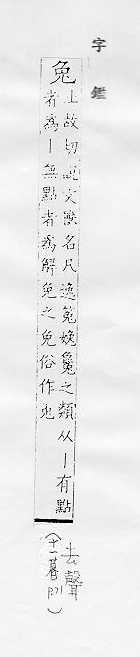 字鑑
兔
土故切說文獸名凡逸菟娩毚之類从丨有點
者為丨無點者為解免之免俗作兎
去聲
(十一暮 P.71)